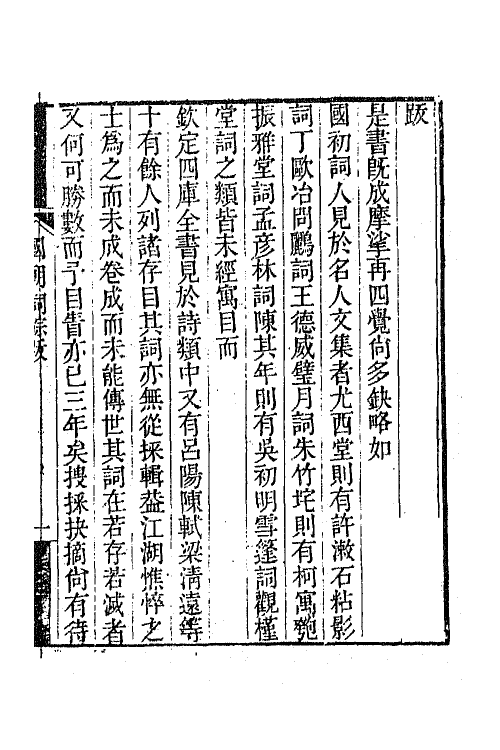 跋
是書旣成摩挲再四覺尙多缺略如
國初詞人見於名人文集者尤西堂則有許漱石粘影
詞丁歐冶問鸝詞王德威璧月詞朱竹垞則有柯寓匏
振雅堂詞孟彦林詞陳其年則有吳初明雪篷詞觀槿
堂詞之類皆未經寓目而
欽定四庫全書見於詩類中又有呂陽陳軾梁淸遠等
十有餘人列諸存目其詞亦無從採輯益江湖憔悴之
士爲之而未成卷成而未能傳世其詞在若存若滅者
又何可勝數而予目眚亦已三年矣搜採抉摘尙有待
國朝詞綜跋
一